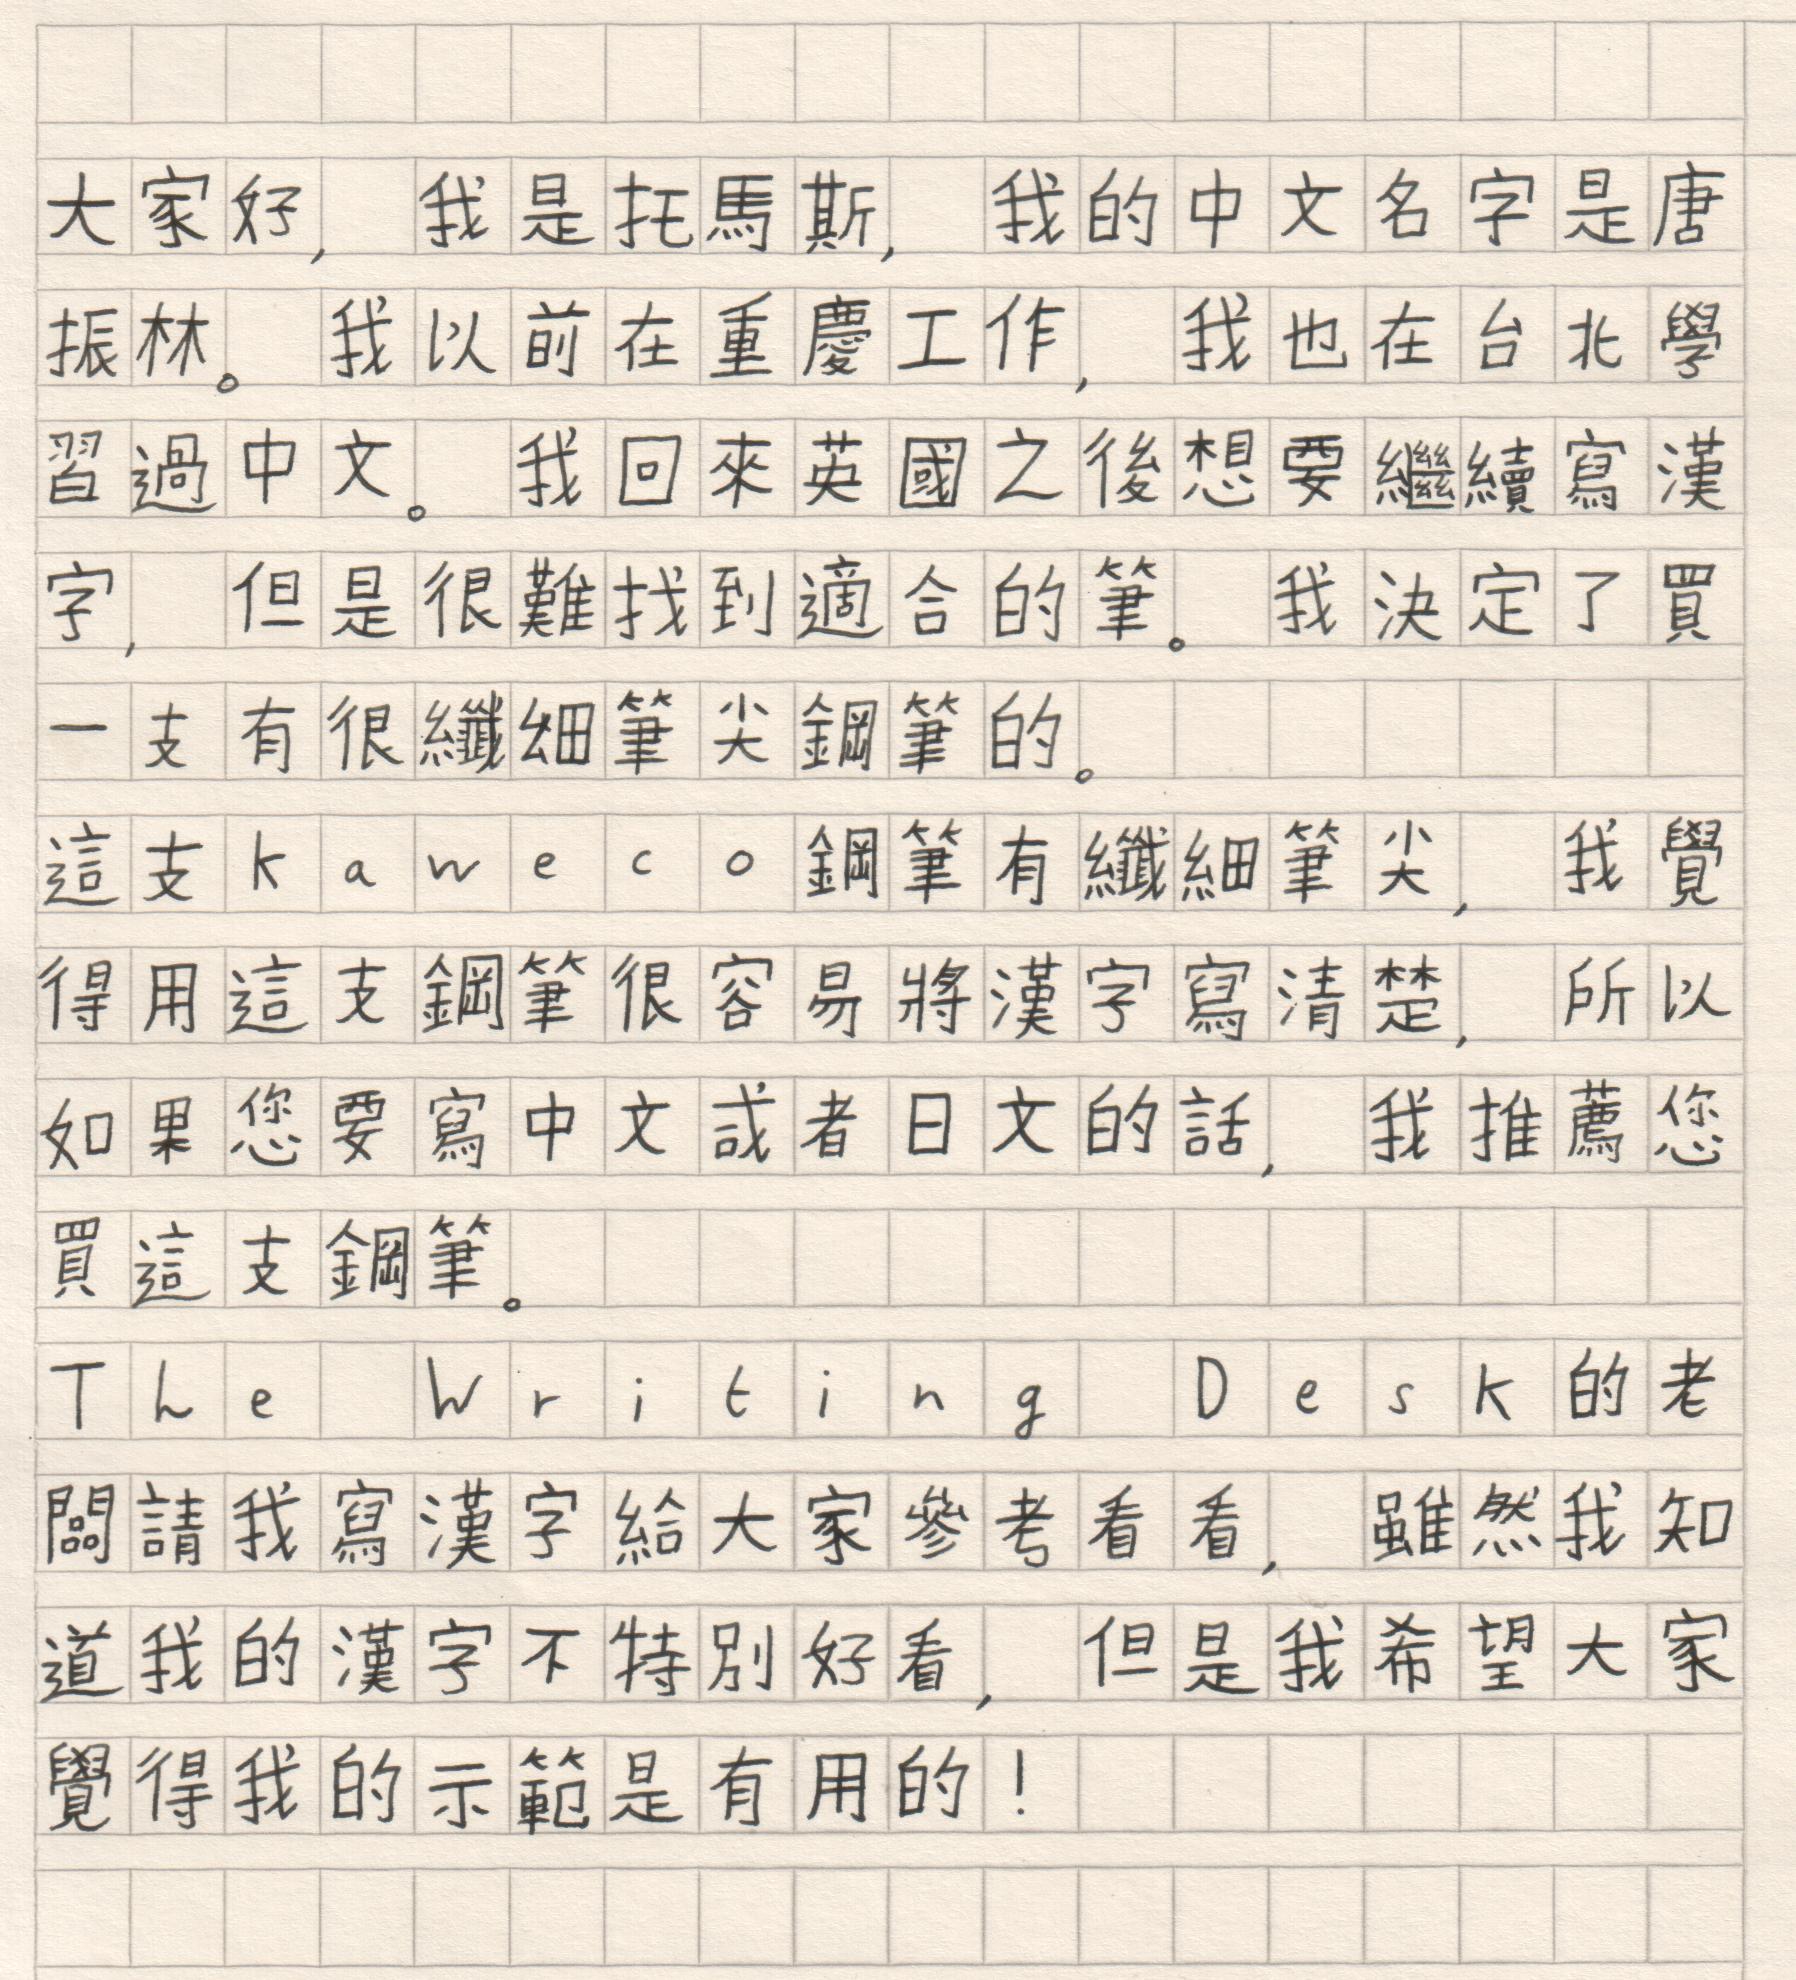 大家好, 我是托馬斯, 我的中文名字是唐
振林。 我以前在重慶工作, 我也在台北學
習過中文。 我回來英國之後想要繼續寫漢
字, 但是很難找到適合的筆。 我決定了買
一支有很纖細筆尖鋼筆的。
這支kaweco鋼筆有纖細筆尖, 我覺
得用這支鋼筆很容易將漢字寫清楚, 所以
如果您要寫中文或者日文的話, 我推薦您
買這支鋼筆。
The Writing Desk的老
闆請我寫漢字給大家參考看看, 雖然我知
道我的漢字不特別好看, 但是我希望大家
覺得我的示範是有用的!